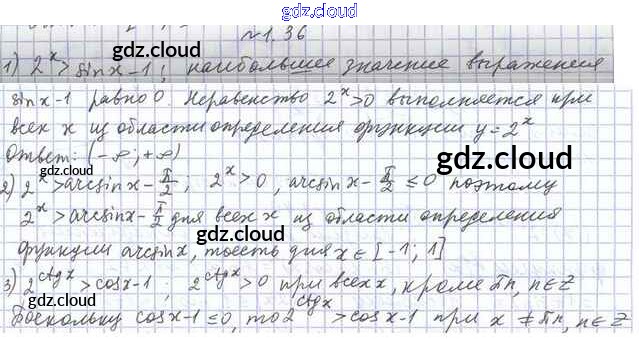 gdz.cloud
№1.36
gdz.cloud
1) 2^x > sin x - 1 ; наибольшее значение выражения
sin x - 1 равно 0. Неравенство 2^x > 0 выполняется при
всех x из области определения функции y = 2^x
Ответ: (-∞; +∞)
gdz.cloud
gdz.cloud
2) 2^x > arcsin x - π/2 ; 2^x > 0 , arcsin x - π/2 ≤ 0 поэтому
2^x > arcsin x - π/2 для всех x из области определения
gdz.cloud
функции arcsin x, тоесть для x ∈ [-1; 1]
3) 2^ctg x > cos x - 1 ; 2^ctg x > 0 при всех x, кроме πn, n ∈ Z
gdz.cloud
Поскольку cos x - 1 ≤ 0, то 2^ctg x > cos x - 1 при x ≠ πn, n ∈ Z
gdz.cloud